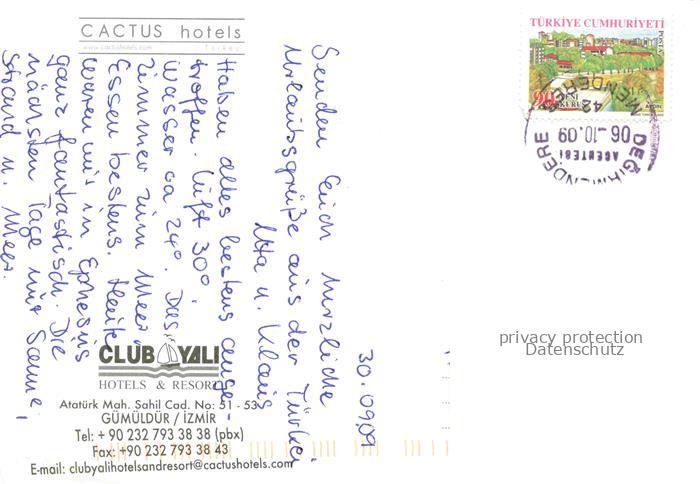 CACTUS hotels
www.cactushotels.com Turkey
30.09.09
Senden Euch herzliche
Urlaubsgrüße aus der Türkei
Uta u. Klaus
Haben alles bestens ange-
troffen. Luft 30°,
Wasser ca 24°. Das
Zimmer zum Meer.
Essen bestens. Heute
waren wir in Ephesus
ganz fantastisch. Die
nächsten Tage nur Sonne,
Strand u. Meer.
CLUB YALI
HOTELS & RESORT
Atatürk Mah. Sahil Cad. No: 51 - 53
GÜMÜLDÜR / İZMİR
Tel: + 90 232 793 38 38 (pbx)
Fax: +90 232 793 38 43
E-mail: clubyalihotelsandresort@cactushotels.com
TÜRKİYE CUMHURİYETİ
POSTA
90 YENİ KURUŞ
AYDIN
MENDERES
06-10.09
AGENTESI
DEĞİRMENDERE
privacy protection
Datenschutz